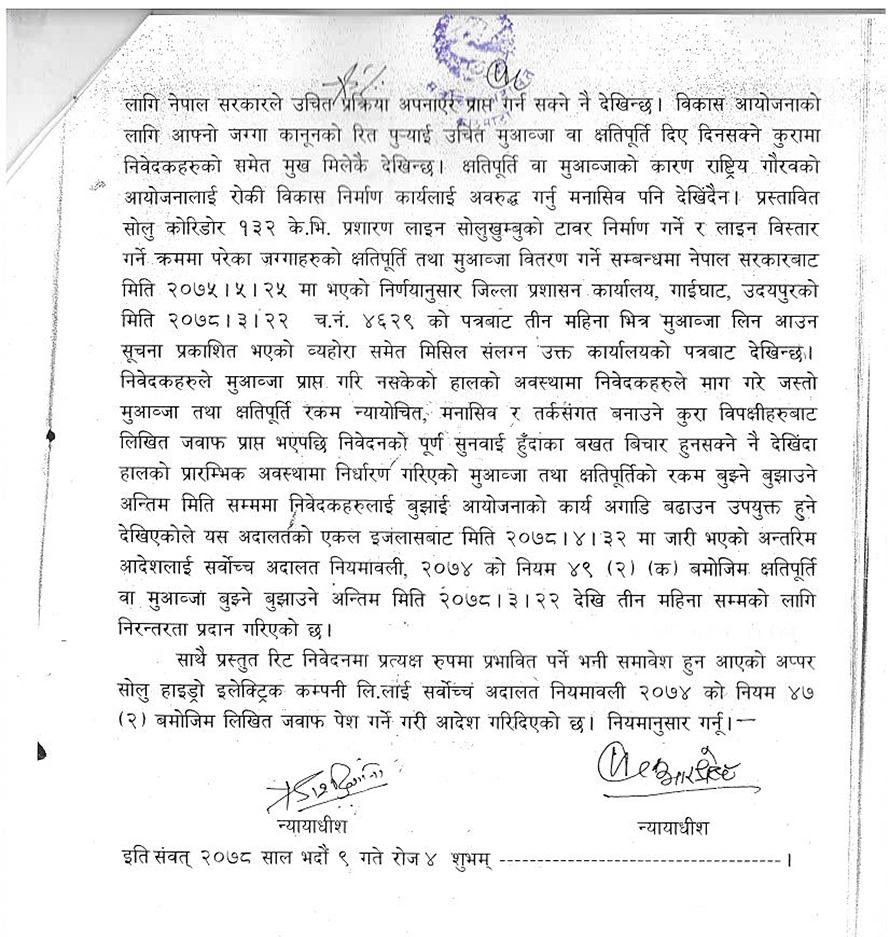 लागि नेपाल सरकारले उचित प्रक्रिया अपनाएर प्राप्त गर्न सक्ने नै देखिन्छ। विकास आयोजनाको
लागि आफ्नो जग्गा कानूनको रित पुऱ्याई उचित मुआव्जा वा क्षतिपूर्ति दिए दिनसक्ने कुरामा
निवेदकहरुको समेत मुख मिलेकै देखिन्छ। क्षतिपूर्ति वा मुआव्जाको कारण राष्ट्रिय गौरवको
आयोजनालाई रोकी विकास निर्माण कार्यलाई अवरुद्ध गर्नु मनासिव पनि देखिंदैन। प्रस्तावित
सोलु कोरिडोर १३२ के.भि. प्रशारण लाइन सोलुखुम्बुको टावर निर्माण गर्ने र लाइन विस्तार
गर्ने क्रममा परेका जग्गाहरुको क्षतिपूर्ति तथा मुआव्जा वितरण गर्ने सम्बन्धमा नेपाल सरकारबाट
मिति २०७५।५।२५ मा भएको निर्णयानुसार जिल्ला प्रशासन कार्यालय, गाईघाट, उदयपुरको
मिति २०७८।३।२२ च.नं. ४६२९ को पत्रबाट तीन महिना भित्र मुआव्जा लिन आउन
सूचना प्रकाशित भएको व्यहोरा समेत मिसिल संलग्न उक्त कार्यालयको पत्रबाट देखिन्छ।
निवेदकहरुले मुआव्जा प्राप्त गरि नसकेको हालको अवस्थामा निवेदकहरुले माग गरे जस्तो
मुआव्जा तथा क्षतिपूर्ति रकम न्यायोचित, मनासिव र तर्कसंगत बनाउने कुरा विपक्षीहरुबाट
लिखित जवाफ प्राप्त भएपछि निवेदनको पूर्ण सुनवाई हुँदाका बखत बिचार हुनसक्ने नै देखिंदा
हालको प्रारम्भिक अवस्थामा निर्धारण गरिएको मुआव्जा तथा क्षतिपूर्तिको रकम बुझ्ने बुझाउने
अन्तिम मिति सम्ममा निवेदकहरुलाई बुझाई आयोजनाको कार्य अगाडि बढाउन उपयुक्त हुने
देखिएकोले यस अदालतको एकल इजलासबाट मिति २०७८।४।३२ मा जारी भएको अन्तरिम
आदेशलाई सर्वोच्च अदालत नियमावली, २०७४ को नियम ४९ (२) (क) बमोजिम क्षतिपूर्ति
वा मुआव्जा बुझ्ने बुझाउने अन्तिम मिति २०७८।३।२२ देखि तीन महिना सम्मको लागि
निरन्तरता प्रदान गरिएको छ।
साथै प्रस्तुत रिट निवेदनमा प्रत्यक्ष रुपमा प्रभावित पर्ने भनी समावेश हुन आएको अप्पर
सोलु हाइड्रो इलेक्ट्रिक कम्पनी लि.लाई सर्वोच्च अदालत नियमावली २०७४ को नियम ४७
(२) बमोजिम लिखित जवाफ पेश गर्ने गरी आदेश गरिदिएको छ। नियमानुसार गर्नू।—
न्यायाधीश न्यायाधीश
इति संवत् २०७८ साल भदौं ९ गते रोज ४ शुभम् ------------------------------------।